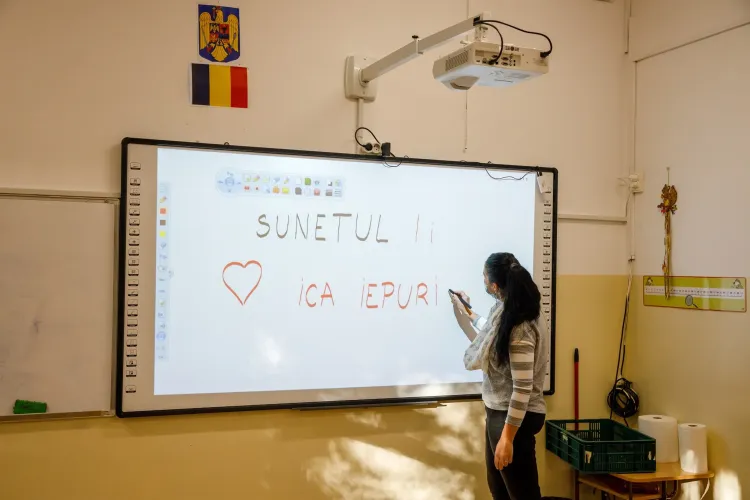 SUNETUL I i
iCA iEPURi